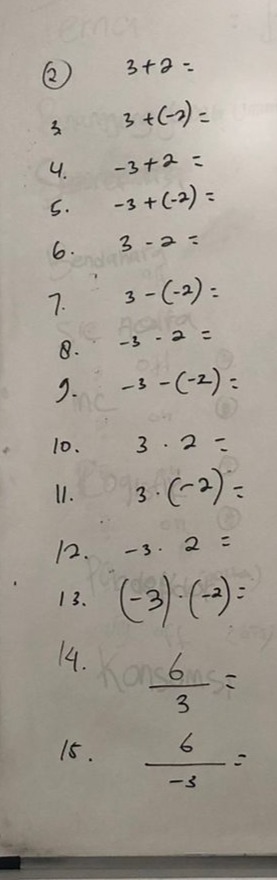 ② 3+2 =
3. 3 + (-2) =
4. -3+2 =
5. -3 + (-2) =
6. 3 - 2 =
7. 3 - (-2) =
8. -3 - 2 =
9. -3 - (-2) =
10. 3 . 2 =
11. 3 . (-2) =
12. -3 . 2 =
13. (-3) . (-2) =
14. 6/3 =
15. 6/-3 =